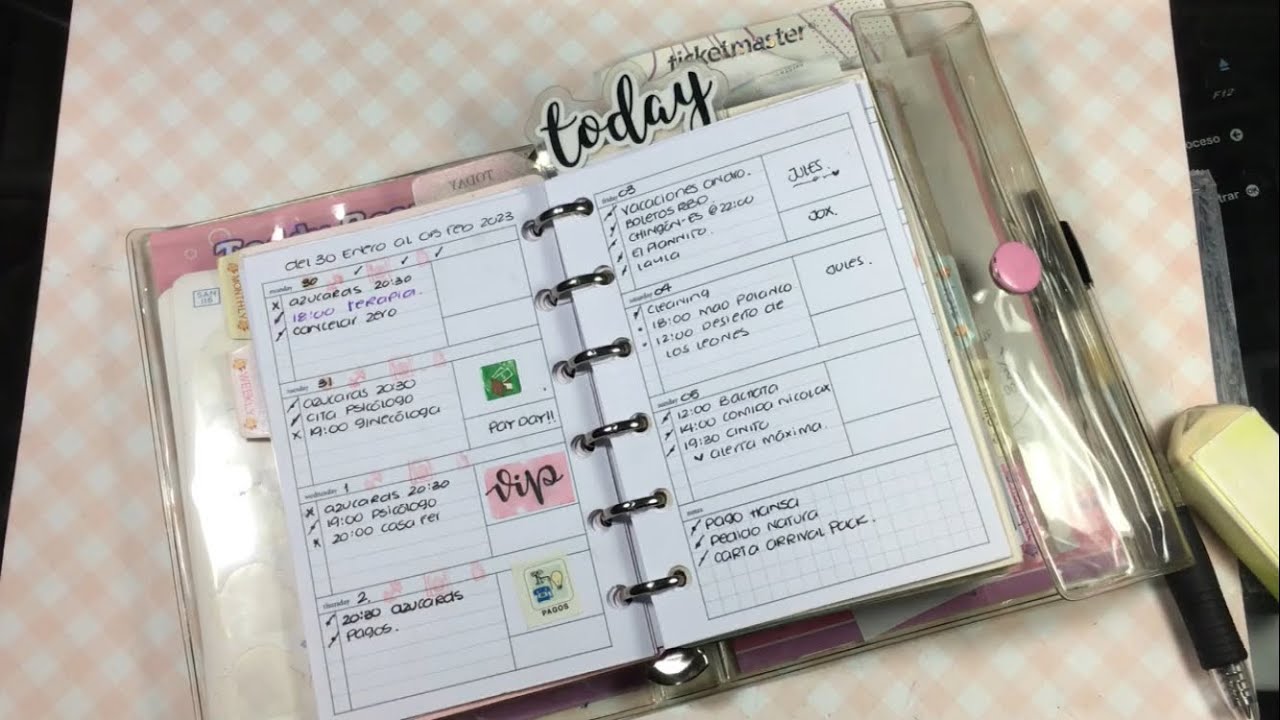 ticketmaster
today
TODAY
F12
SAN
MONTHLY
WEEKLY
del 30 Enero al 05 Feb 2023
monday 30
azucaras 20:30
18:00 terapia.
cancelar zero
tuesday 31
azucaras 20:30
cita psicólogo
19:00 ginecóloga
PAYDAY!!
wednesday 1
azucaras 20:30
19:00 psicólogo
20:00 casa fer
vip
thursday 2
20:30 azucaras
pagos.
PAGOS
friday 03
vacaciones
Boletos RBD
@22:00
El Plannito.
Laula
JULES.
JOX.
saturday 04
cleaning
18:00 mao Polanco
12:00 Desierto de
Los Leones
JULES.
sunday 05
12:00 Bachata
14:00 comida nicolax
19:30 cinito
alerta máxima.
notes
Pago Hansa
Pedido Natura
Carta Arrival Pack.